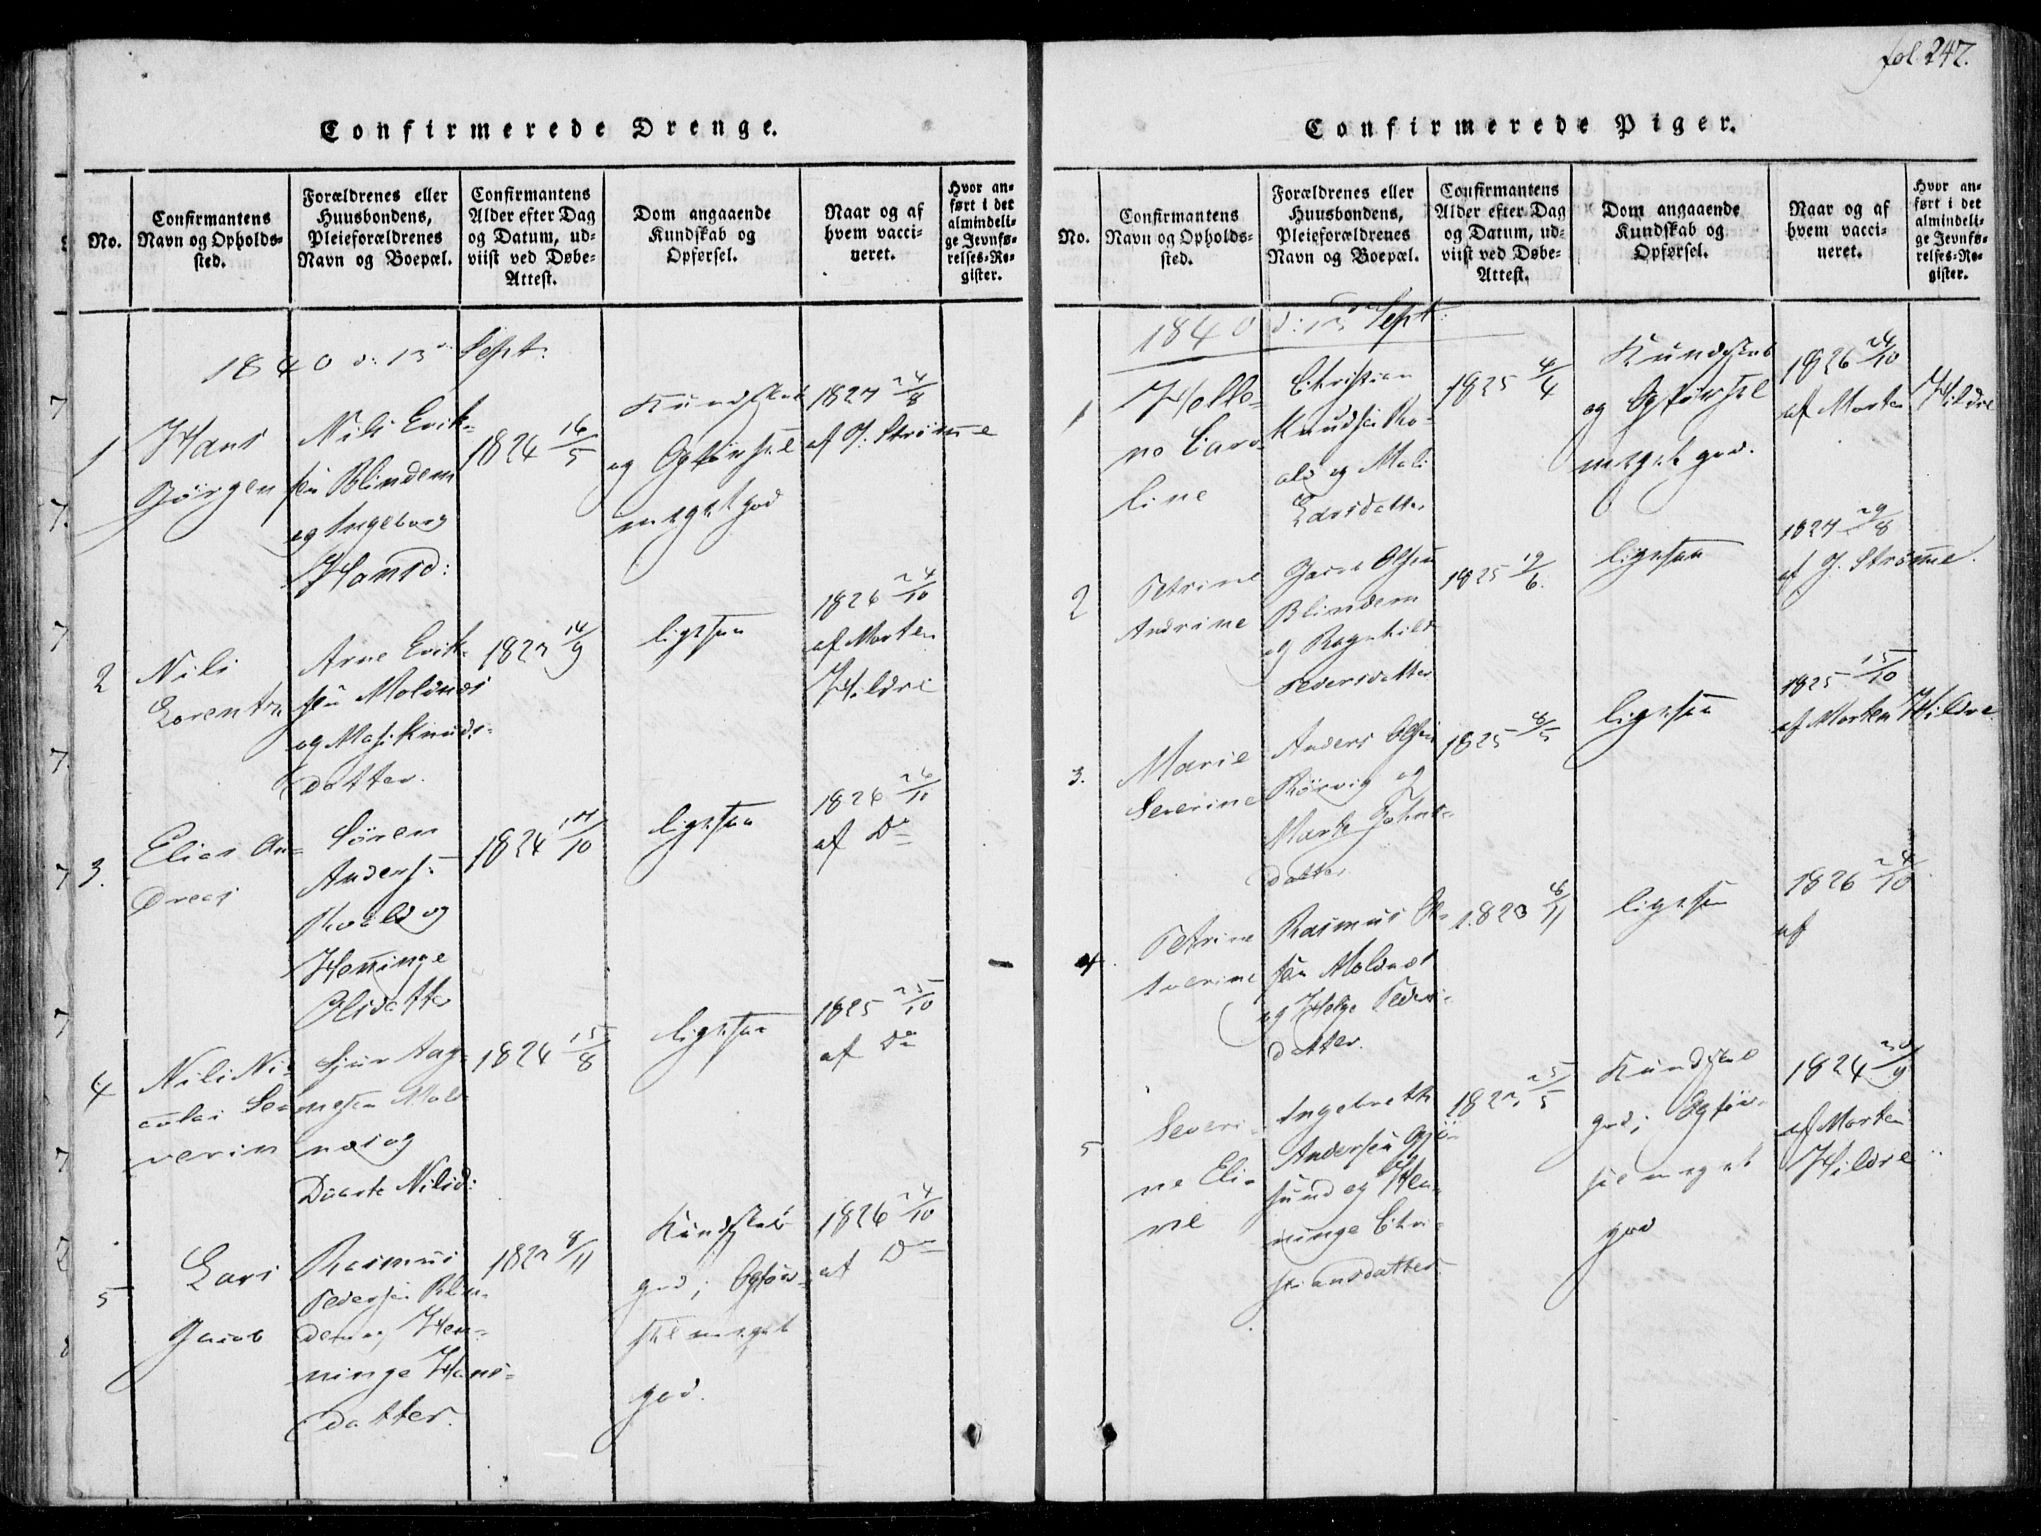 fol 247.
Confirmerede Drenge.
No.
Confirmantens
Navn og Opholds-
sted.
Forældrenes eller
Huusbondens,
Pleieforældrenes
Navn og Boepæl.
Confirmantens
Alder efter Dag
og Datum, ud-
viist ved Døbe-
Attest.
Dom angaaende
Kundskab og
Opførsel.
Naar og af
hvem vacci-
neret.
Hvor an-
ført i det
almindeli-
ge Jevnfø-
relses-Re-
gister.
1840 d: 13de Sept:
1
Hans
Jörgen
Nils Erik-
sen Blindem
og Ingeborg
Hansd:
1824 16/5
Kundskab
og Opförsel
meget god
1827 24/8
af J: Strömme
2
Nils
Lorents
Arne Erik-
sen Moldnæs
og Masi Knuds-
datter.
1823 14/9
ligesaa
1826 24/10
af Morten
Hildre
3.
Elias An-
dreas
Sören
Anders:
Roald og
Henninge
Olsdatter
1824 17/10
ligesaa
1826 26/10
af Do
4
Nils Ni-
colai Se-
verin
Sjur Aag-
nesen Mold-
næs og
Duarte Nilsd:
1824 15/8
ligesaa
1825 25/10
af Do
5
Lars
Jacob
Rasmus
Pedersen Blin-
dem og Hen-
ninge Hans-
datter.
1823 8/11
Kundskab
god; Opför-
sel meget
god.
1826 24/10
af Do
Confirmerede Piger.
No.
Confirmantens
Navn og Opholds-
sted.
Forældrenes eller
Huusbondens,
Pleieforældrenes
Navn og Boepæl.
Confirmantens
Alder efter Dag
og Datum, ud-
viist ved Døbe-
Attest.
Dom angaaende
Kundskab og
Opførsel.
Naar og af
hvem vacci-
neret.
Hvor an-
ført i det
almindeli-
ge Jevnfø-
relses-Re-
gister.
1840 d: 13de Sept:
1
line
Christian
Knudsen Ro-
ald og Mali
Larsdatter
1825 4/4
Kundskab
og Opförsel
meget god.
1826 24/10
af Morten Hildre
2
Petrine
Andrine
Jacob Olsen
Blindem
og Ragnhild
Pedersdatter
1825 19/6.
ligesaa
1827 29/8
af J. Strömme.
3.
Marie
Severine
Anders Olsen
Rörvig og
Marte Johns-
datter
1825 8/5
ligesaa
1825 15/10
af Morten Hildre
4.
Petrine
Rasmus Ol-
sen Moldnæs
og Helge Peders-
datter.
1823 8/11
ligesaa
1826 24/10
af
5
Severi-
ne Eli-
ne
Ingebreth
Andersen Gjö-
sund og Hen-
ninge Chri-
stiansdatter
1823 25/5
Kundskab
god; Opför-
sel meget
god
1824 20/9
af Morten
Hildre